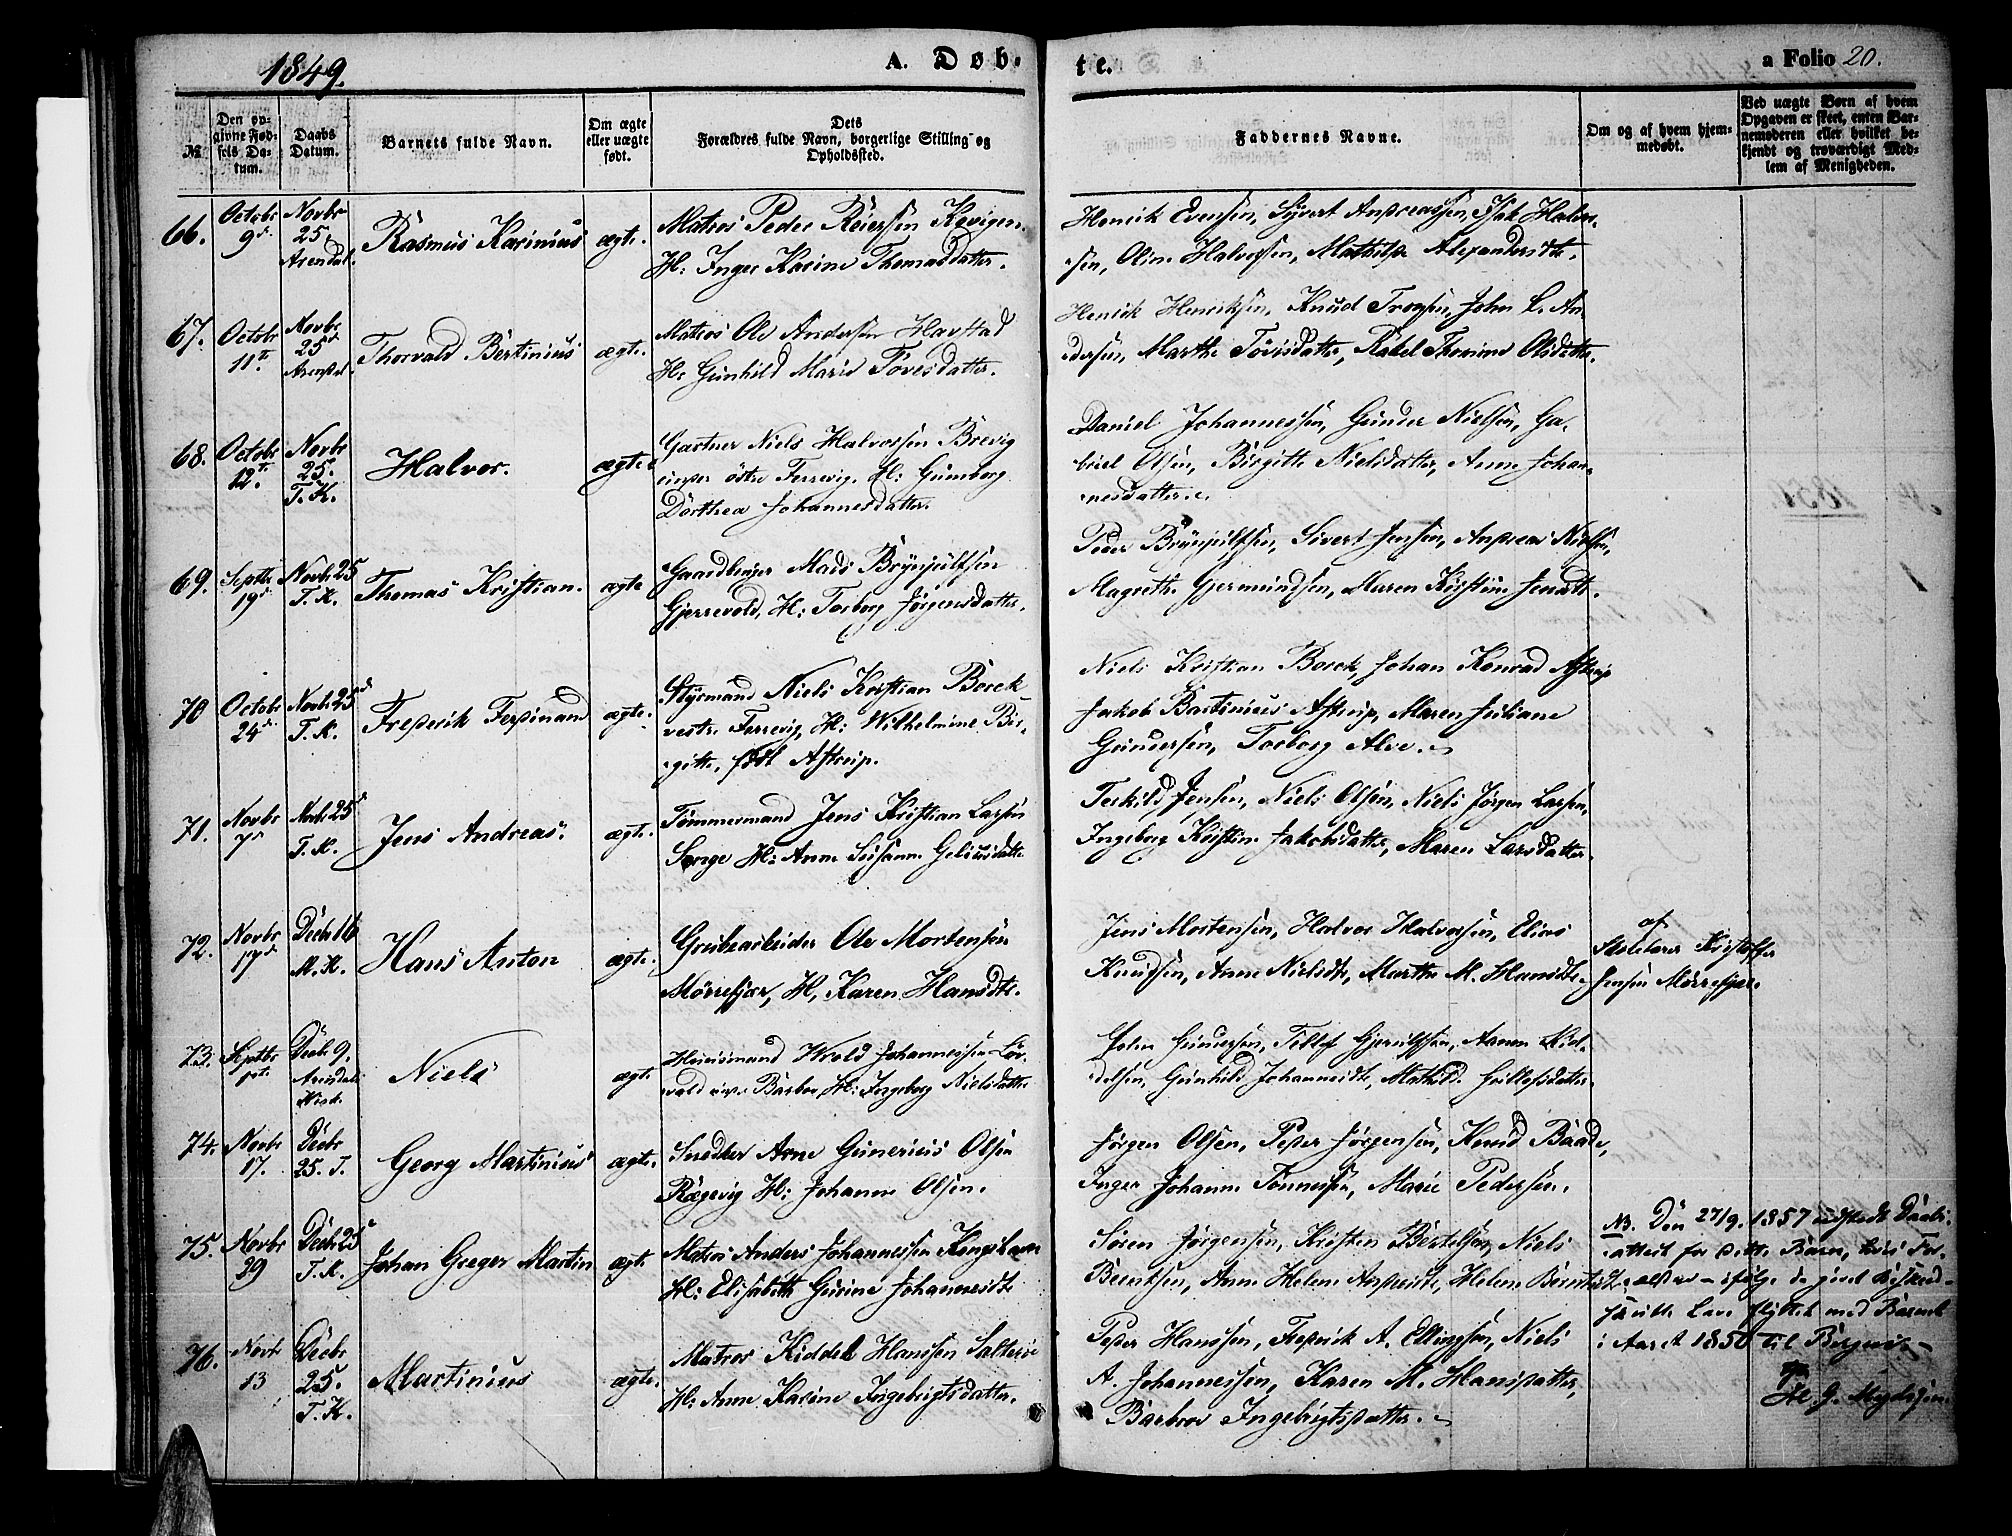 1849.
A. Døb-
te.
a Folio 20.
№
Den op-
givne Fød-
sels Da-
tum.
Daabs
Datum.
Barnets fulde Navn.
Om ægte
eller uægte
født.
Dets
Forældres fulde Navn, borgerlige Stilling og
Opholdssted.
Faddernes Navne.
Om og af hvem hjem-
medøbt.
Ved uægte Børn af hvem
Opgaven er skeet, enten Bar-
nemoderen eller hvilket be-
kjendt og troværdigt Med-
lem af Menigheden.
66.
Octobr
9d.
Novbr
25.
Arendal.
Rasmus Karinius
ægte.
Matros Peder Reiersen
H: Inger Karine Thomasdatter.
Henrik Evensen, Syvert Andreassen, Isak Halvor-
sen, Oline Halvorsen, Mathilde Alexandersdtr.
67.
Octobr
11te
Novbr
25d
Arendal
Thorvald Bertinius
ægte.
Matros Ole Andersen Havstad
H: Gunhild Marie Tovesdatter.
Henrik Henriksen, Knud Troesen, John L. An-
dersen, Marthe Tovesdatter, Rakel Thorine Olsdatter.
68.
Octobr
12te.
Novbr
25.
T. K.
Halvor.
ægte
Gartner Niels Halvorsen Brevig
under østre Terrevig. H: Gumborg
Dorthea Johannesdatter.
Daniel Johannessen, Gunder Nielsen, Ga-
briel Olsen, Birgitte Nielsdatter, Anne Johan-
nesdatter.
69.
Septbr
19d
Novbr 25
T. K.
Thomas Kristian.
ægte
Gaardbruger Mads Brynjulfsen
Gjerrevold, H: Torborg Jørgensdatter.
Peder Brynjulfsen, Sivert Jensen, Andreas Nielsen,
Magrethe Gjermundsen, Maren Kristine Jensdtr.
70
Octobr
24d.
Novbr 25d
T. K.
Frederik Ferdinand
ægte.
Styrmand Niels Kristian Borck
vestre Terrevig, H: Wilhelmine Bir-
gitte, født Astrup.
Niels Kristian Borck, Johan Konrad Astrup
Jakob Bastinius Astrup, Maren Juliane
Gundersen, Torborg Alve.
71.
Novbr
7d
Novbr 25d
T. K.
Jens Andreas.
ægte.
Tømmermand Jens Kristian Larsen
Songe H: Anne Susanne Geliusdatter
Terkild Jensen, Niels Olsen, Niels Jørgen Larsen,
Ingeborg Kristine Jakobsdatter, Maren Larsdatter.
72.
Novbr
17d
Decbr 16
M. K.
Hans Anton
ægte.
Grubearbeider Ole Mortensen
Mørrefjær, H, Karen Hansdtr.
Jens Mortensen, Halvor Halvorsen, Elias
Knudsen, Anne Nielsdtr, Marthe M. Hansdtr.
af
Skolelærer Kristoffer
Jensen Mørrefjær.
73.
Septbr
Decbr 9.
Arendals
Niels
ægte
Johannessen
Barboe, H: Ingeborg Nielsdatter
John Gundersen, Tellef Gjerulfsen, Aanon
Gunhild Johannesdtr, Mathilde
74.
Novbr
17.
Decbr
25. T.
Georg Martinius
ægte.
Snedker Arne Gunerius Olsen
Rægevig H: Johanne Olsen.
Jørgen Olsen, Peder Jørgensen, Knud Baade,
Inger Johanne Tønnesen, Marie Pedersen.
75.
Novbr
29
Decbr 25
T. K.
Johan Greger Martin
ægte
Matros Anders Johannessen Kongshavn
H: Elisabeth Gurine Johannesdtr
Søren Jørgensen, Kristen Bertelsen, Niels
Berntsen, Anne Helene Andreasdtr, Helene Berntsdtr
NB. Den 27/9. 1857 udstedt Daabs-
attest for dette Barn, hvis For-
ældre - ifølge
skulle have flyttet med Barnet
i Aaret 1850 til Bergen. -
76.
Novbr
13
Decbr
25.
T. K.
Martinius
ægte.
Matros Kiddel Hanssen Salterøe
H: Anne Karine Ingebrigtsdatter.
Peder Hanssen, Frederik A. Ellingsen, Niels
A. Johannessen, Karen M. Hansdatter,
Barbroe Ingebrigtsdatter.